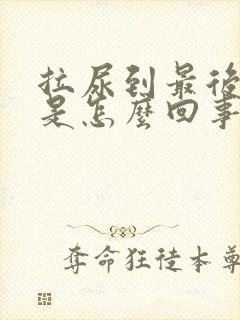 拉尿到最後
是怎麼回事
奪命狂徒本尊